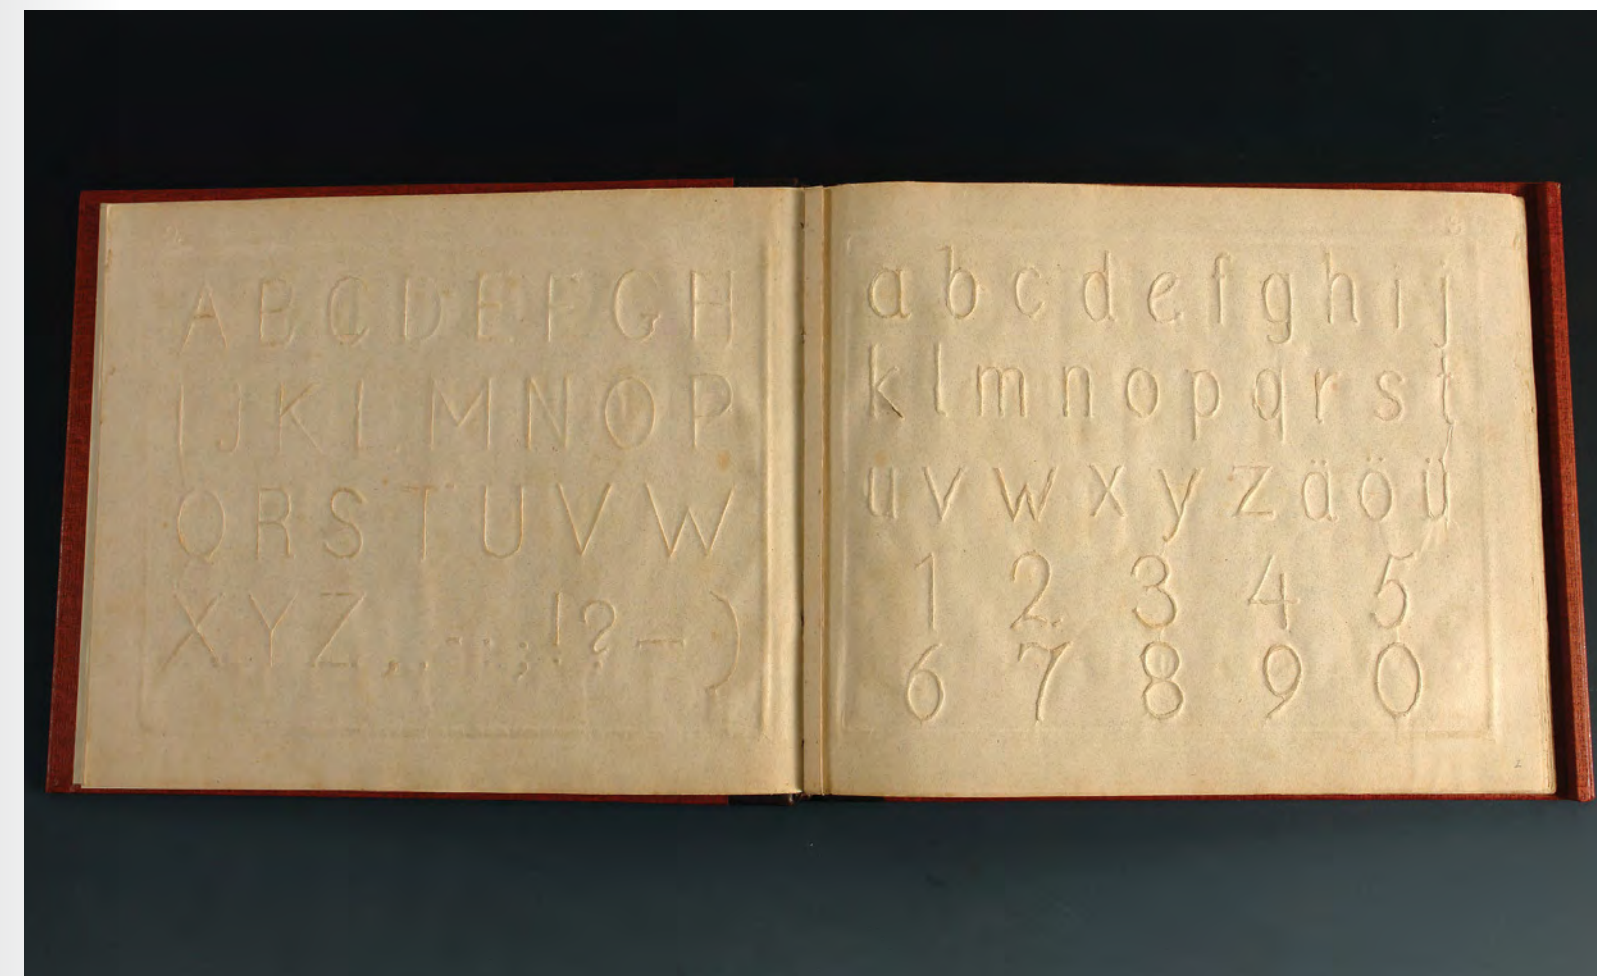 A B C D E F G H
I J K L M N O P
Q R S T U V W
X Y Z , . - : ; ! ? — )
a b c d e f g h i j
k l m n o p q r s t
u v w x y z ä ö ü
1 2 3 4 5
6 7 8 9 0